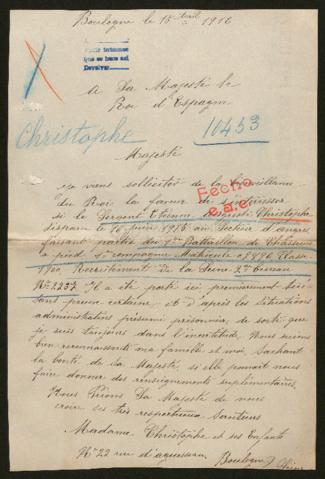 Boulogne le 15 Avril 1916
A Sa Majesté le
Roi d'Espagne
Christophe
10453
Majesté
je viens solliciter de la bienveillance
du Roi la faveur de
si le Sergent Christophe
disparu le 16 juin 1915 au Secteur d'angres
faisant partie du Bataillon de Chasseurs
à pied compagnie Matricule Classe
1900, Recrutement de la Seine 2me bureau
No 2237. Il a été porté ici premièrement
sans preuve certaine, et d'après les
administratives présumé prisonnier, de sorte que
je suis toujours dans l'incertitude. Nous serions
bien reconnaissants ma famille et moi, sachant
la bonté de Sa Majesté, si elle pouvait nous
faire donner des renseignements supplémentaires.
Nous Prions Sa Majesté de nous
croire ses très respectueux serviteurs
Madame Christophe et ses Enfants
No 22 rue d'aguesseau. Boulogne Seine
Fecho